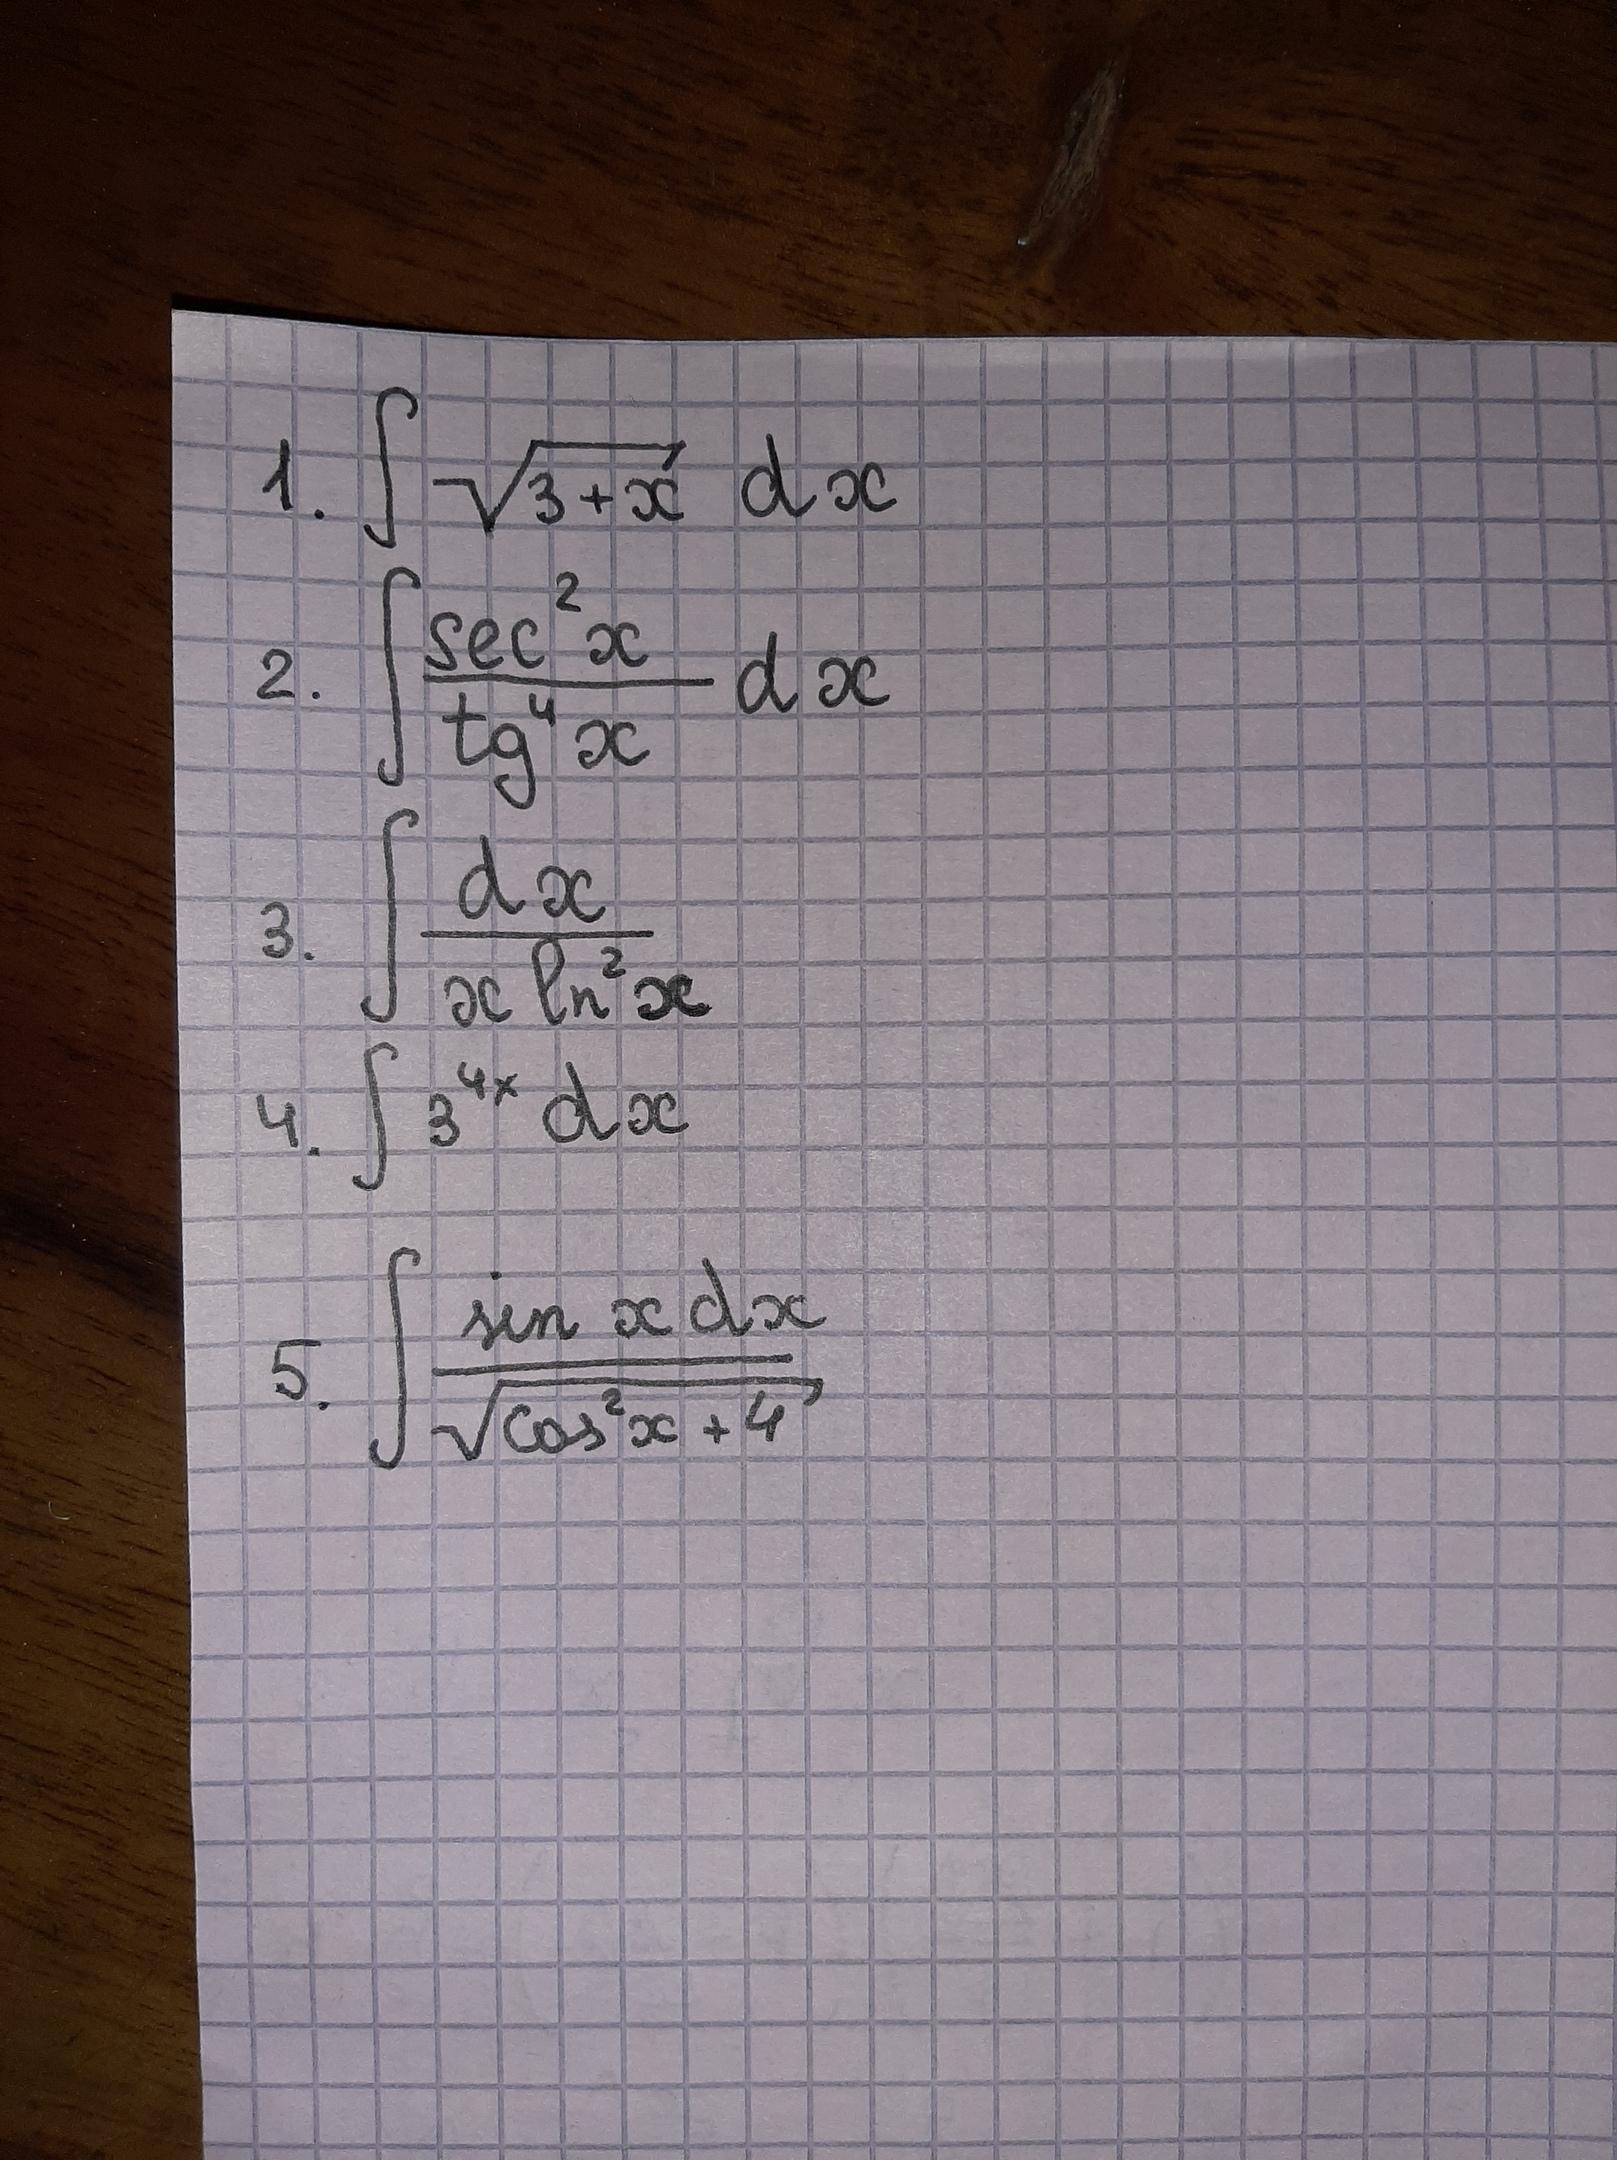 1. ∫ √(3+x) dx
2. ∫ sec²x / tg⁴x dx
3. ∫ dx / x ln²x
4. ∫ 3⁴ˣ dx
5. ∫ sin x dx / √(cos²x + 4)